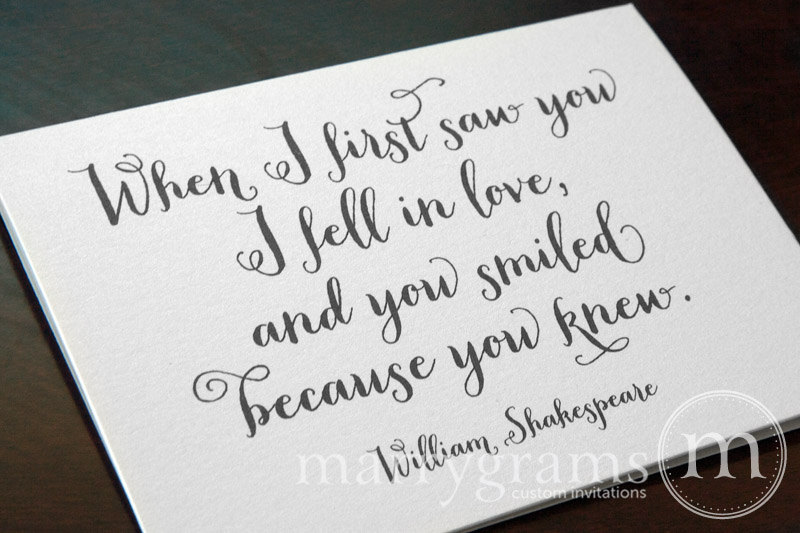 When I first saw you
I fell in love,
and you smiled
because you knew.
William Shakespeare
marrygrams
custom invitations
m